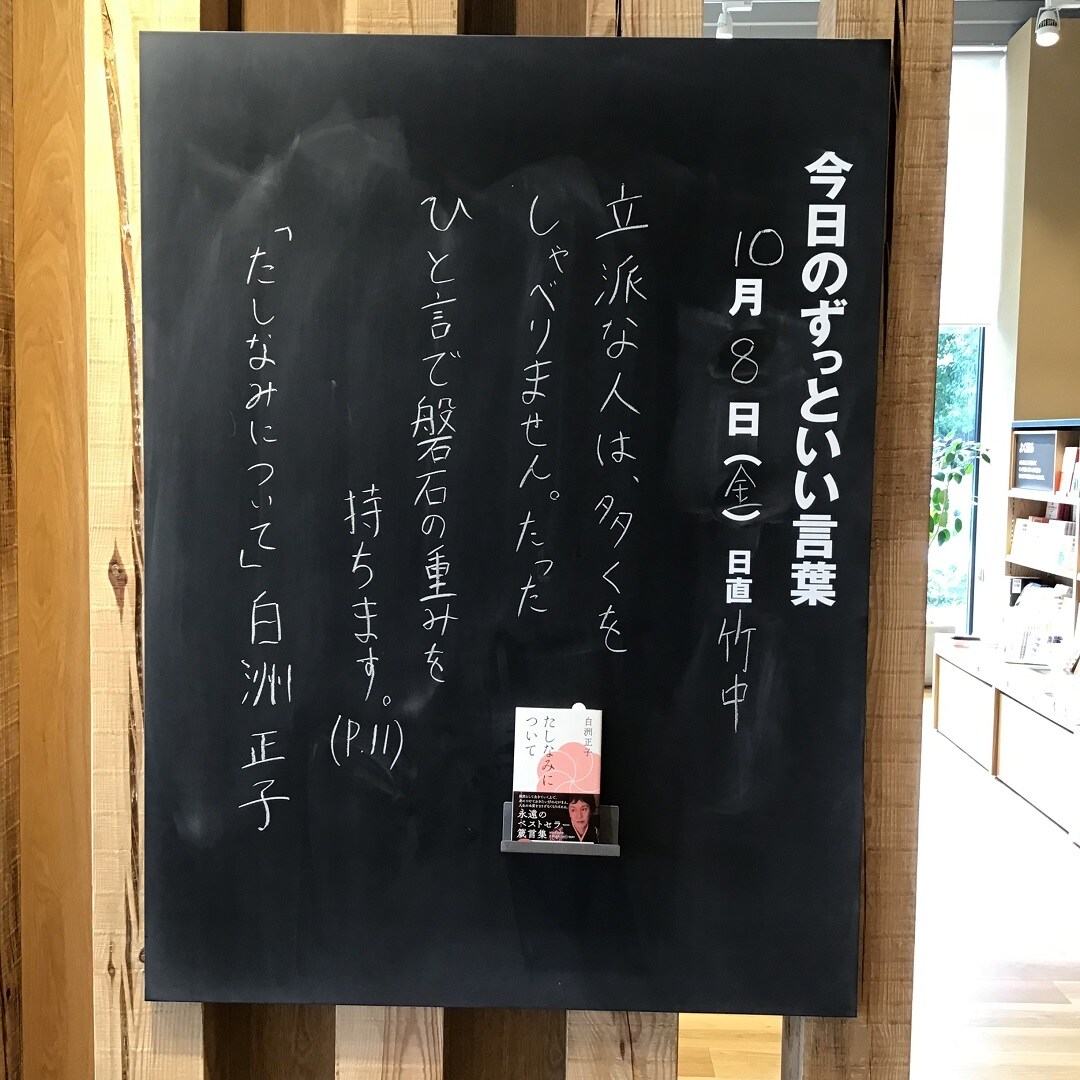 今日のずっといい言葉
10月8日(金) 日直 竹中
立派な人は、多くを
しゃべりません。たった
ひと言で磐石の重みを
持ちます。
(P.11)
「たしなみについて」白洲正子
白洲正子
たしなみに
ついて
永遠の
ベストセラー
箴言集